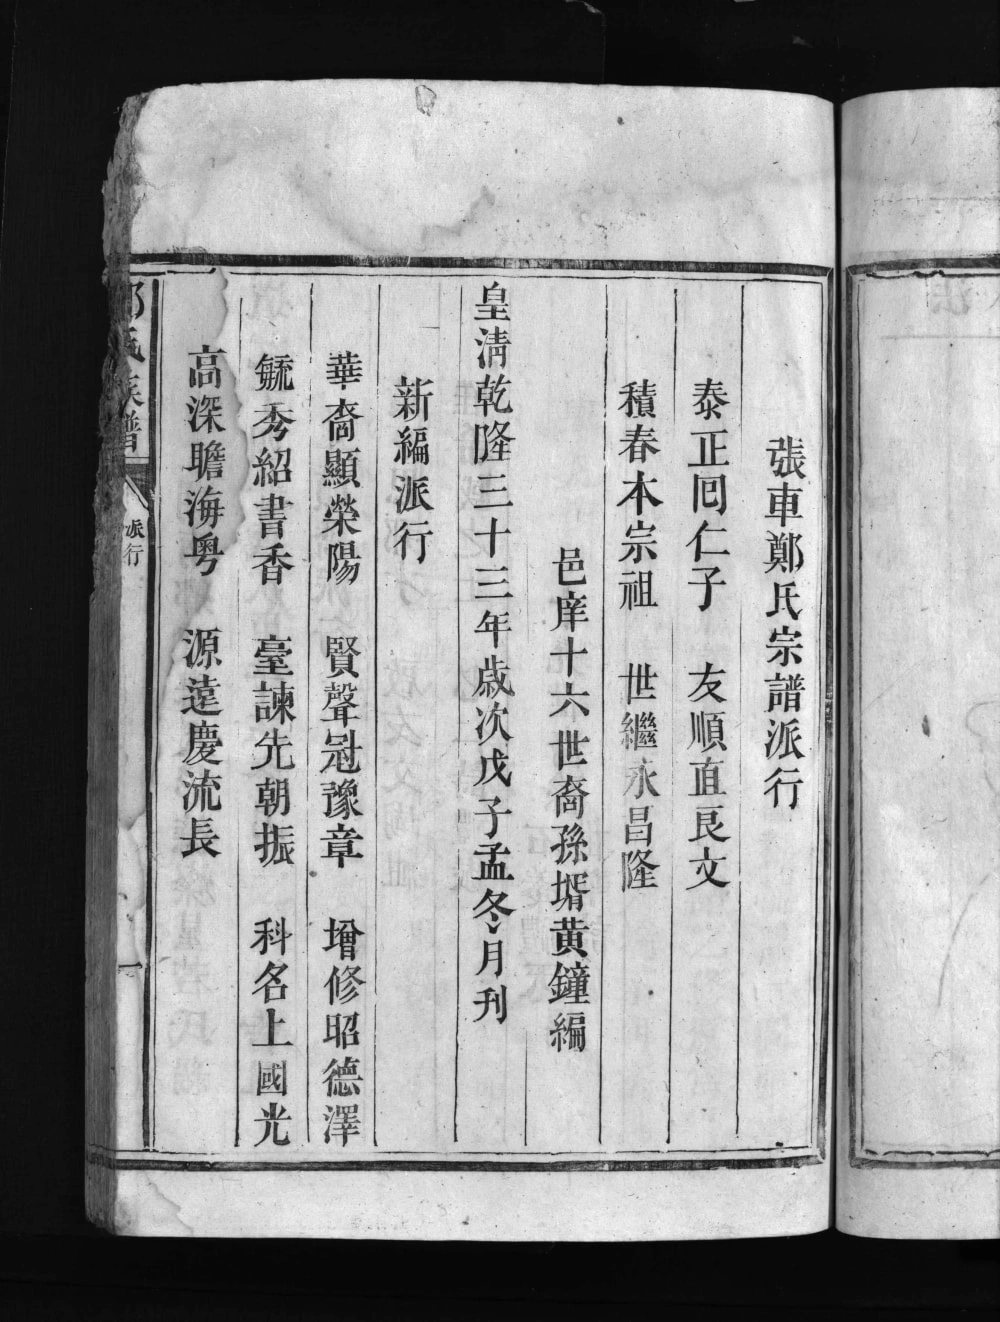 張車鄭氏宗譜派行
泰正囘仁子　友順直良文
積春本宗祖　世繼永昌隆
邑庠十六世裔孫壻黄鐘編
皇清乾隆三十三年歲次戊子孟冬月刊
新編派行
華裔顯榮陽　賢聲冠豫章　增修昭德澤
毓秀紹書香　臺諫先朝振　科名上國光
高深瞻海粤　源遠慶流長
氏族譜
派行
一